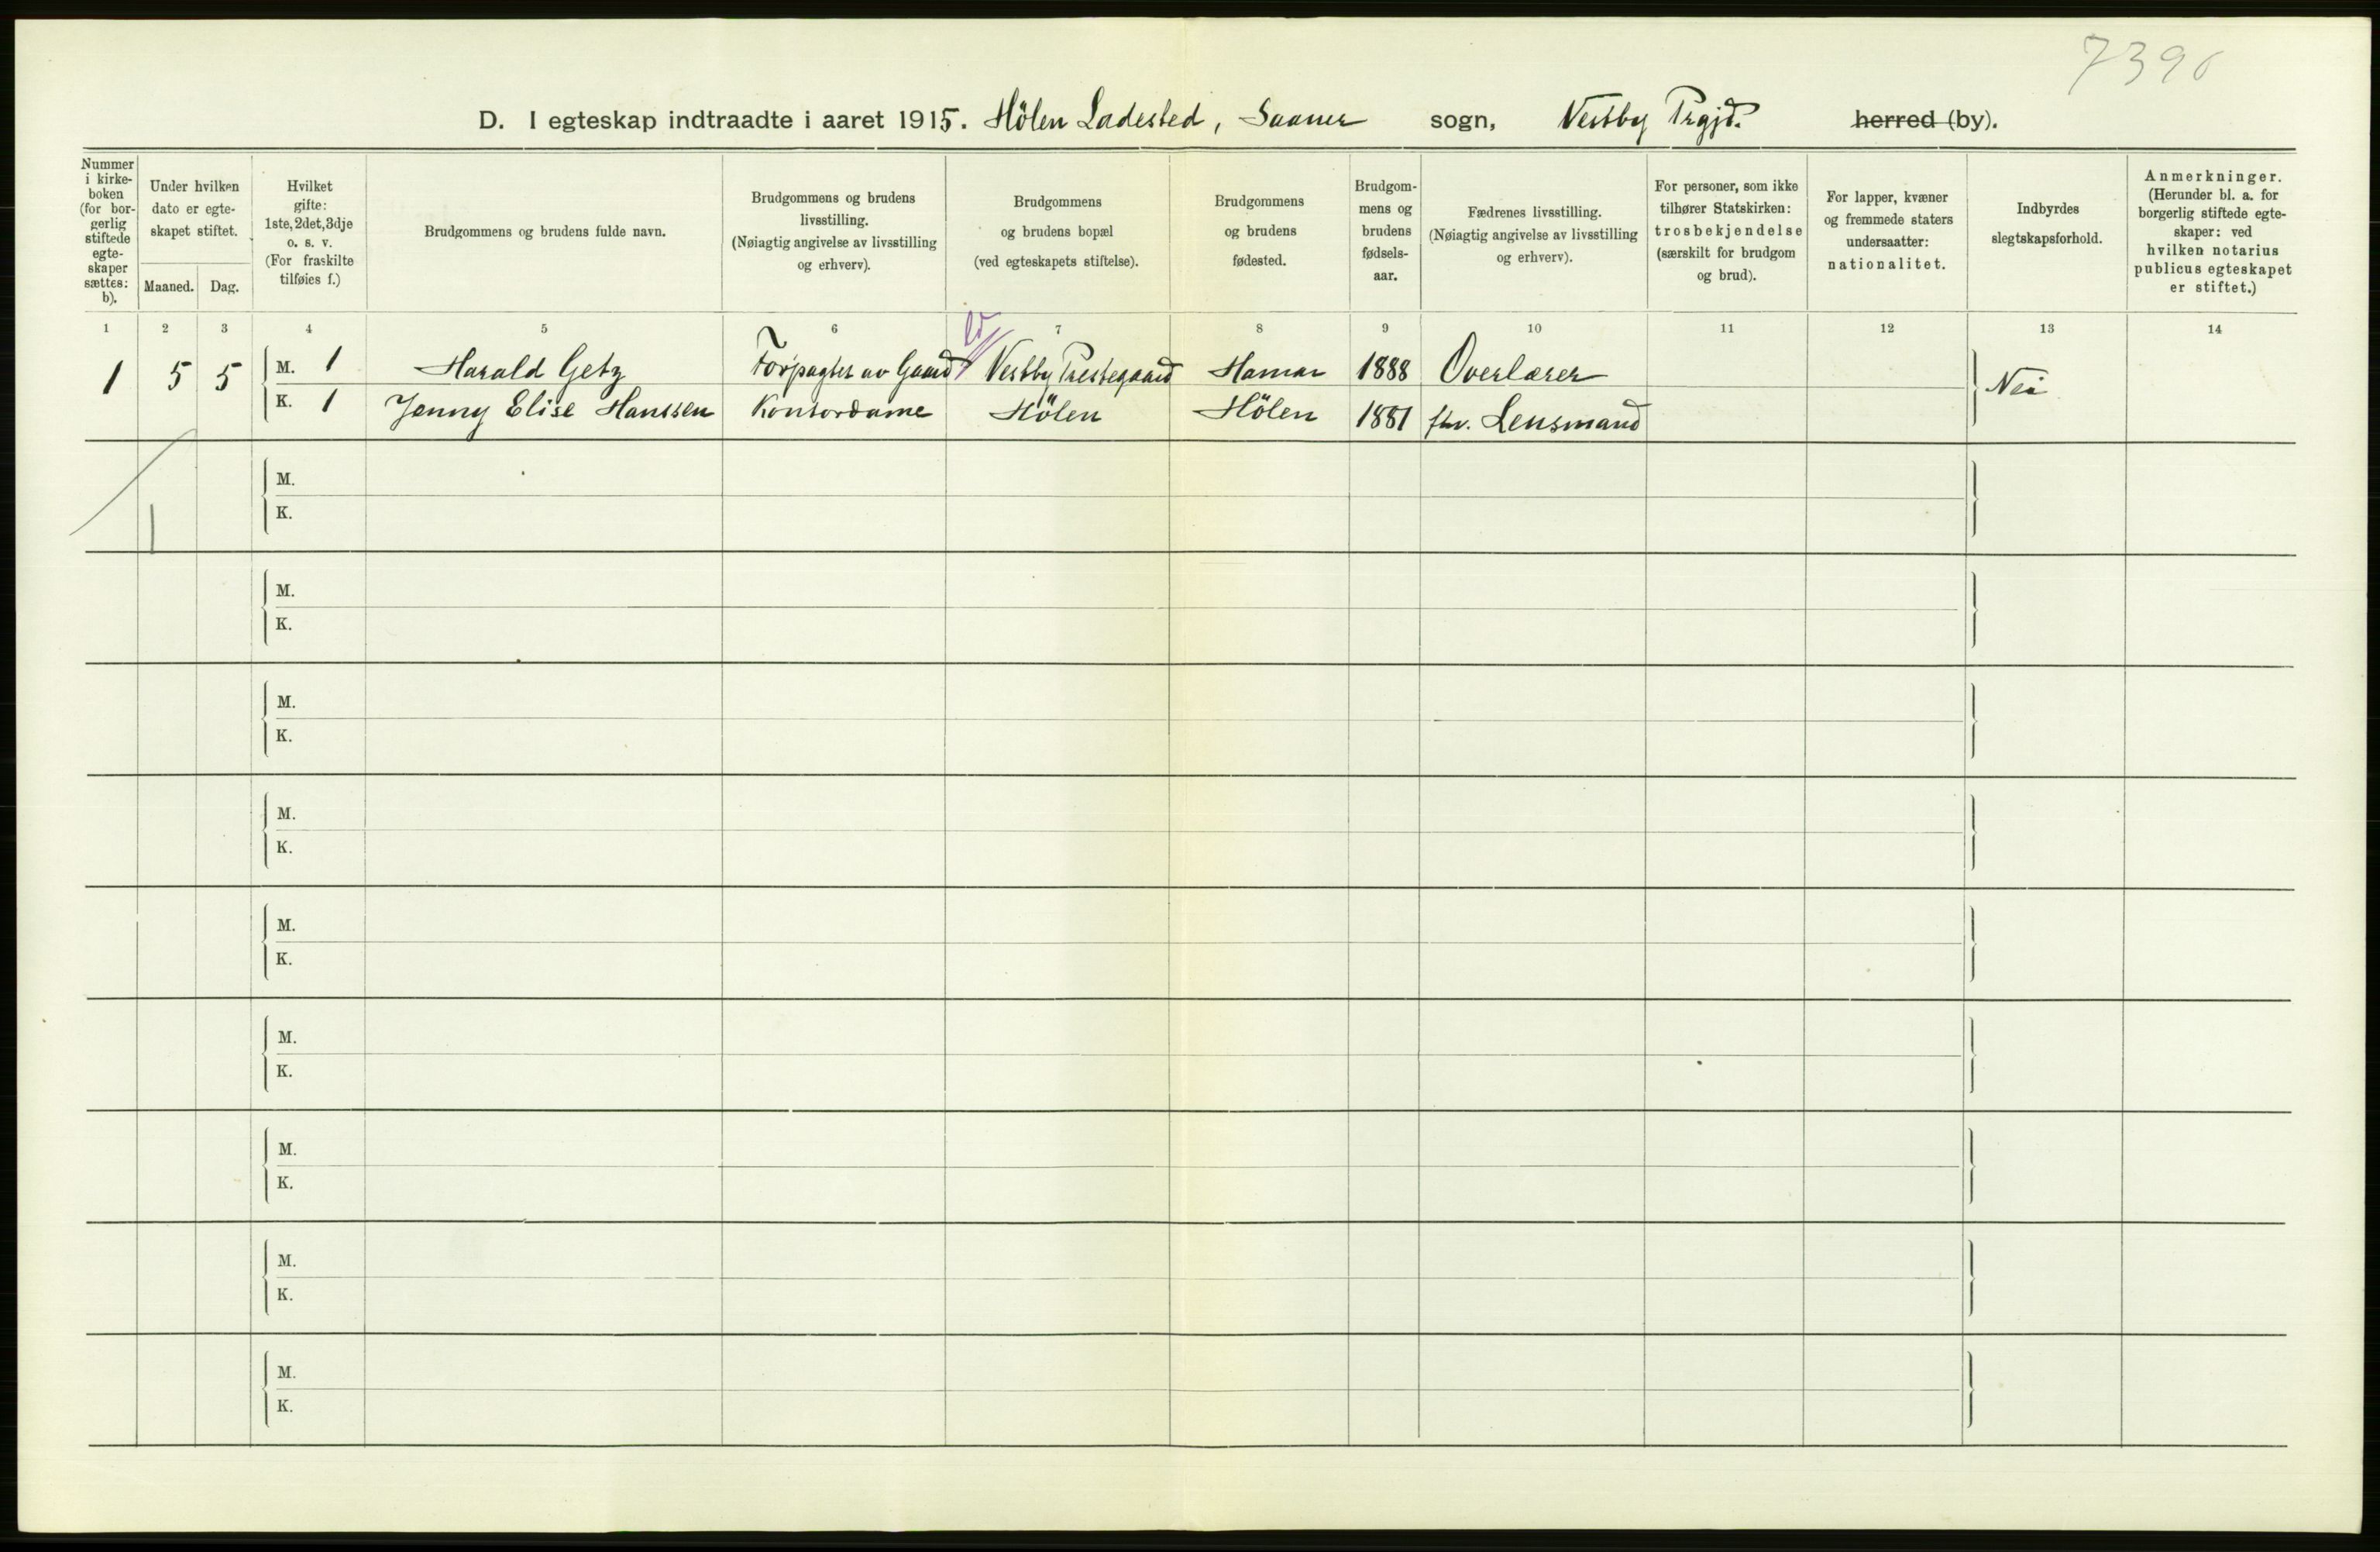 7390
D. I egteskap indtraadte i aaret 1915. Hölen Ladested, Saaner sogn, Vestby Prgjd. herred (by).
Nummer i kirke- boken (for bor- gerlig stiftede egte- skaper sættes: b).
Under hvilken dato er egte- skapet stiftet.
Maaned. Dag.
Hvilket gifte: 1ste, 2det, 3dje o. s. v. (For fraskilte tilføies f.)
Brudgommens og brudens fulde navn.
Brudgommens og brudens livsstilling. (Nøiagtig angivelse av livsstilling og erhverv).
Brudgommens og brudens bopæl (ved egteskapets stiftelse).
Brudgommens og brudens fødested.
Brudgom- mens og brudens fødsels- aar.
Fædrenes livsstilling. (Nøiagtig angivelse av livsstilling og erhverv).
For personer, som ikke tilhører Statskirken: trosbekjendelse (særskilt for brudgom og brud).
For lapper, kvæner og fremmede staters undersaatter: nationalitet.
Indbyrdes slegtskapsforhold.
Anmerkninger. (Herunder bl. a. for borgerlig stiftede egte- skaper: ved hvilken notarius publicus egteskapet er stiftet.)
1 2 3 4 5 6 7 8 9 10 11 12 13 14
1 5 5 M. 1 Harald Getz Forpagter av Gaard Vestby Prestegaard Hamar 1888 Overlærer Nei
K. 1 Jenny Elise Hanssen Kontordame Hölen Hölen 1881 fhv. Lensmand
1
M.
K.
M.
K.
M.
K.
M.
K.
M.
K.
M.
K.
M.
K.
M.
K.
M.
K.